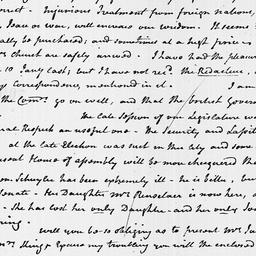 rrect - Injurious Treatment from foreign nations,
Loan or war, will encrease our wisdom. It seems
ally be purchased; and sometimes at a high price
Church are safely arrived. I have had the pleasure
10 Jany last; but I have not recd. the Redacteur,
y Correspondence, mentioned in it. I am
the Comrs. go on well, and that the British Govern
The late Session of our Legislature w
eral Respects an useful one - The Security and
at the late Election was such in this City and some
usual House of assembly will be more chequered tha
Schuyler has been extremely ill - he is better, but
Senate - His Daughter Mrs Renselaer is now here,
- She has lost her only Daughter - and her only
ring.
Will you be so obliging as to present Mr
King & Excuse my troubling you with the enclosed